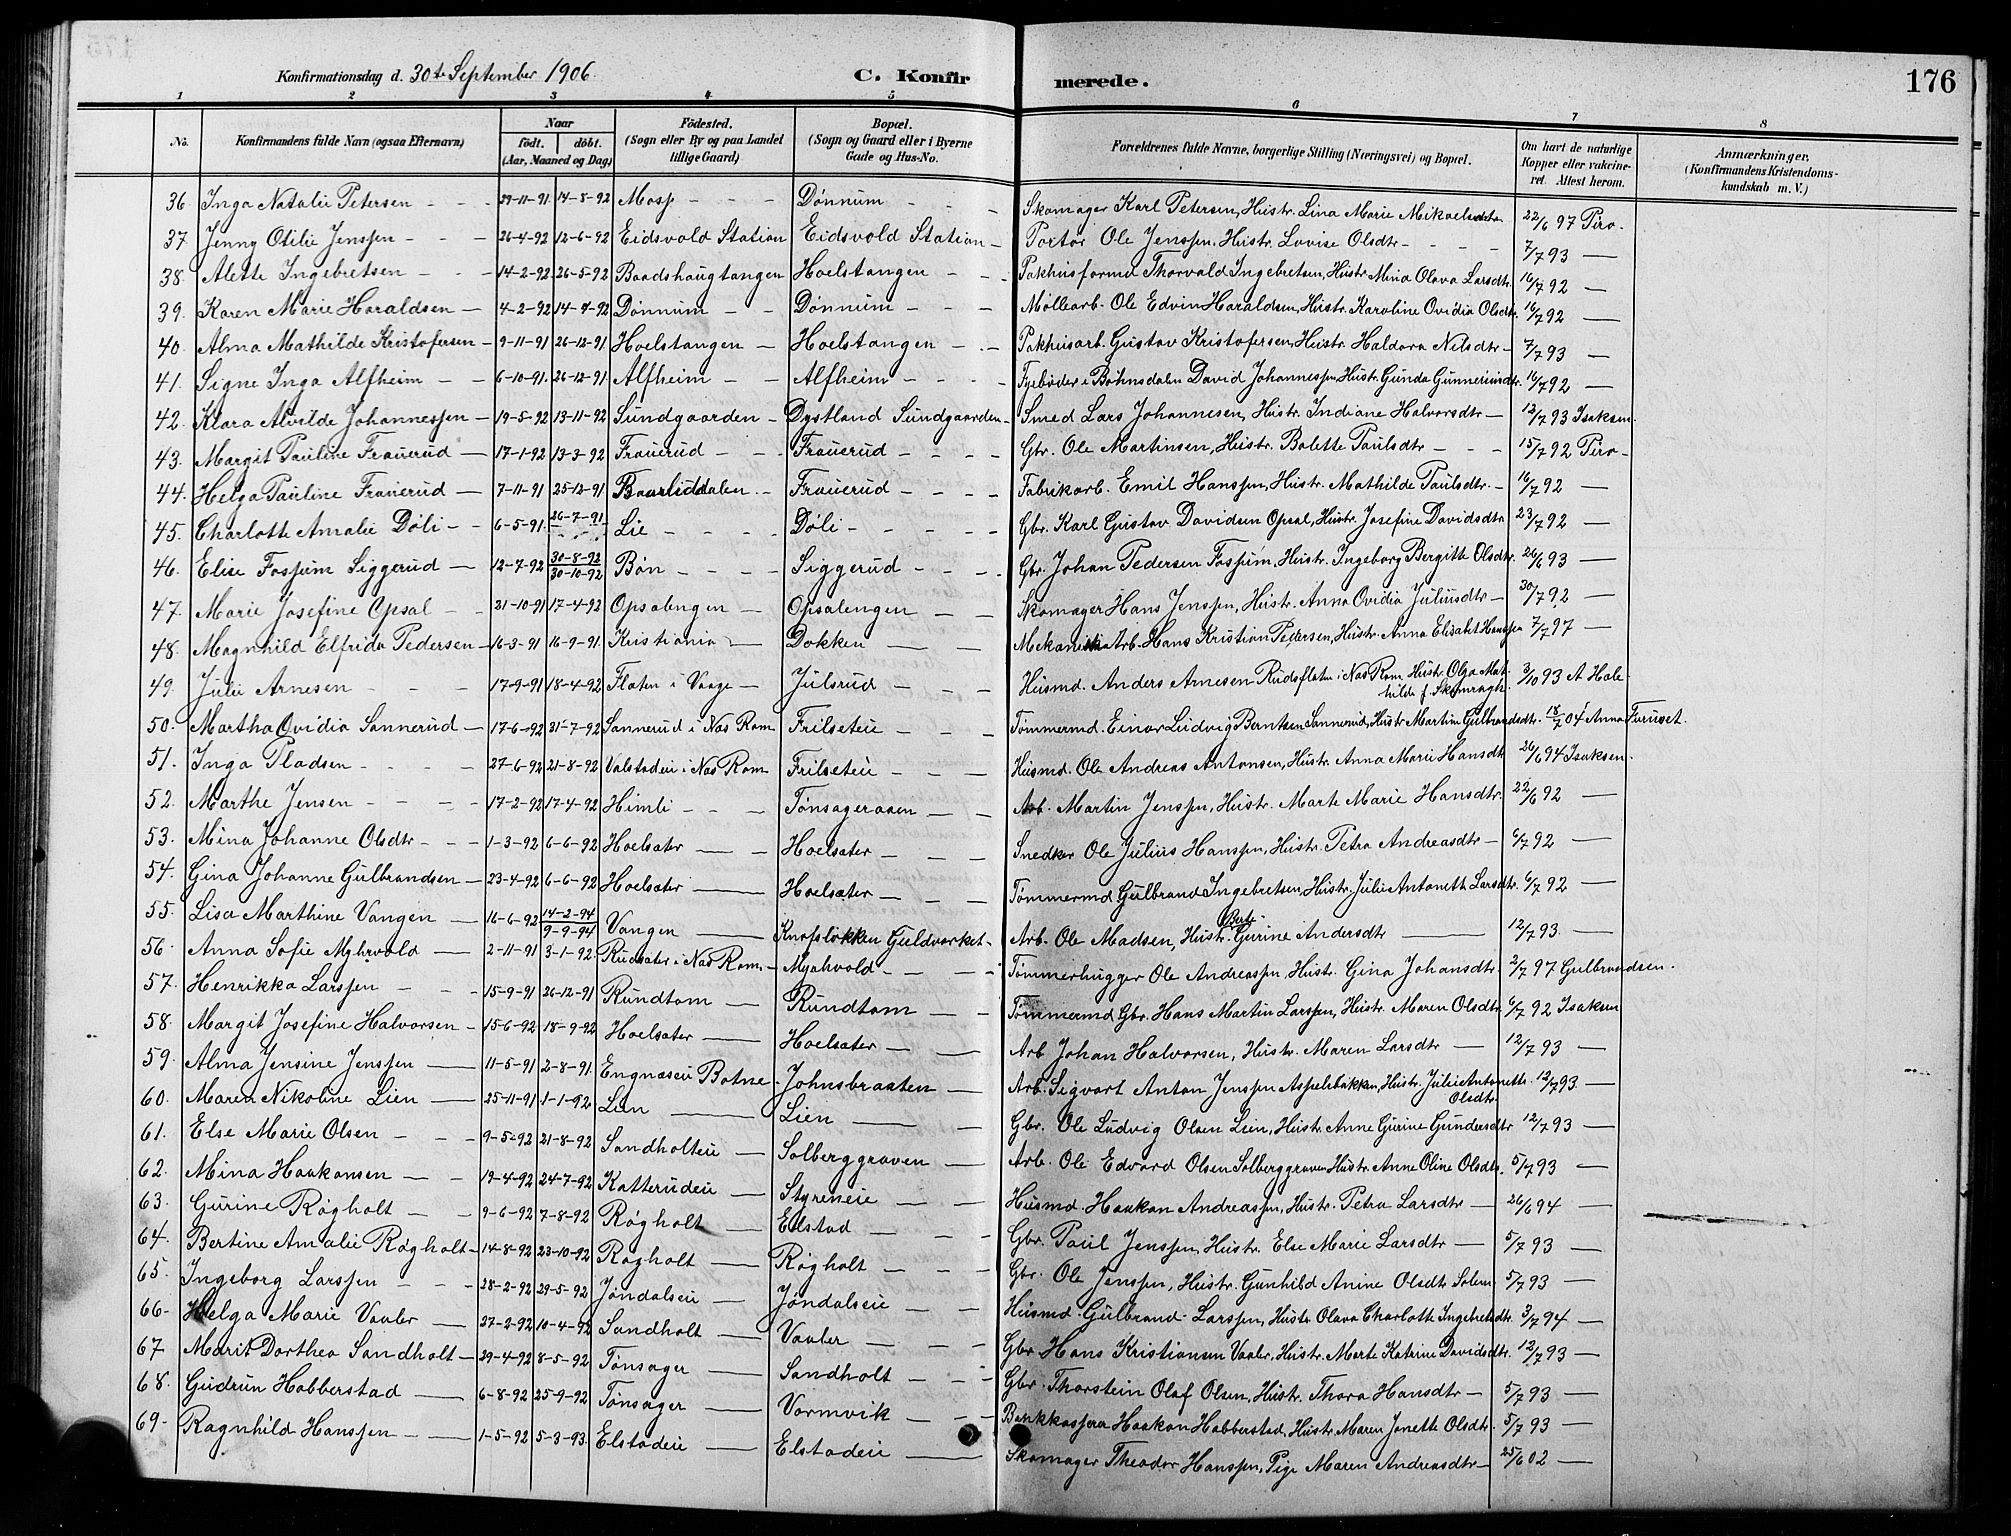 Konfirmationsdag d. 30te September 1906. C. Konfirmerede. 176
1 2 3 4 5 6 7 8
No. Konfirmandens fulde Navn (ogsaa Efternavn) Naar født. døbt. (Aar, Maaned og Dag) Fødested. (Sogn eller By og paa Landet tillige Gaard) Bopæl. (Sogn og Gaard eller i Byerne Gade og Hus-No. Forældrenes fulde Navne, borgerlige Stilling (Næringsvei) og Bopæl. Om havt de naturlige Kopper eller vakcineret. Attest herom. Anmærkninger. (Konfirmandens Kristendomskundskab m. V.)
36 Inga Natalie Petersen 29-11-91 14-8-92 Mosp Dønnum Skomager Karl Petersen, Hustr. Lina Marie Mikaelsdtr 22/6 97 Piro
37 Jenny Otilie Jenssen 26-4-92 12-6-92 Eidsvold Station Eidsvold Station Portør Ole Jenssen, Hustr. Lovise Olsdtr 7/7 93 —
38. Alette Ingebretsen 14-2-92 26-5-92 Baadshaugtangen Hoelstangen Pakhusformd Thorvald Ingebretsen, Hustr. Mina Olava Larsdtr. 16/7 92 —
39. Karen Marie Haraldsen 4-2-92 14-4-92 Dønnum Dønnum Møllearb. Ole Edvin Haraldsen, Hustr. Karoline Ovidia Olsdtr. 16/7 92 —
40. Alma Mathilde Kristofersen 9-11-91 26-12-91 Hoelstangen Hoelstangen Pakhusarb. Gustav Kristofersen, Hustr. Haldora Nilsdtr 7/7 93 —
41. Signe Inga Alfheim 6-10-91. 26-12-91 Alfheim Alfheim Fyrbøder i Bøhnsdalen David Johannessen Hustr. Gunda Gunneriusdtr. 16/7 92 —
42. Klara Alvilde Johannessen 19-5-92 13-11-92 Sundgaarden Dystland Sundgaarden Smed Lars Johannesen, Hustr. Indiane Halvorsdtr 12/7 93 Isaksen.
43. Margit Pauline Frauerud 17-1-92 13-3-92 Frauerud Frauerud Gbr. Ole Martinsen, Hustr. Bolette Paulsdtr 15/7 92 Piro
44. Helga Pauline Frauerud 7-11-91 25-12-91 Baarliddalen Frauerud Fabrikarb. Emil Hanssen, Hustr. Mathilde Paulsdtr. 16/7 92 —
45. Charlotte Amalie Døli 6-5-91. 26-7-91 Lie Døli Gbr. Karl Gustav Davidsen Opsal, Hustr. Josefine Davidsdtr 23/7 92 —
46. Elise Fossum Siggerud 12-7-92 30-8-92 30-10-92 Bøn Siggerud Gbr. Johan Pedersen Fossum, Hustr. Ingeborg Bergitte Olsdtr. 26/6 93 —
47. Marie Josefine Opsal 21-10-91 17-4-92 Opsalengen Opsalengen Skomager Hans Jenssen, Hustr. Anna Ovidia Juliusdtr 30/7 92 —
48. Magnhild Elfrida Pedersen 16-3-91 16-9-91. Kristiania Dokken Mekanisk Arb. Hans Kristian Pedersen, Hustr. Anna Elisabet Hanssen 7/7 97 —
49. Julie Arnesen 17-9-91 18-4-92 Flaten i Vaage Julsrud Husmd. Anders Arnesen Rudsflaten i Nas Rom. Hustr. Olga Mathilde f. Skomragh. 3/10 93 A Hole
50. Martha Ovidia Sannerud 17-6-92 31-7-92 Sannerud i Nas Rom Frilseteie Tømmermd. Einar Ludvig Berntsen Sannerud, Hustr Martine Gulbrandsdtr. 18/7 04 Anna Furuset.
51. Inga Pladsen 27-6-92 21-8-92 Valstadeie i Nas Rom Frilseteie Husmd. Ole Andreas Antonsen, Hustr. Anna Marie Hansdtr 26/6 94 Isaksen.
52. Marthe Jensen 17-2-92 17-4-92 Himli Tønsageraasen Arb. Martin Jenssen, Hustr. Marte Marie Hansdtr. 22/6 92 —
53. Mina Johanne Olsdtr 1-3-92 6-6-92 Hoelsæter Hoelsæter Snedker Ole Julius Hanssen, Hustr. Petra Andreasdtr 6/7 92 —
54. Gina Johanne Gulbrandsen 23-4-92 6-6-92 Hoelsæter Hoelsæter Tømmermd Gulbrand Ingebretsen, Hustr. Julie Antonette Larsdtr. 6/7 92 —
55. Lisa Marthine Vangen 16-6-92 14-2-94 9-9-94 Vangen Knapsløkken Guldværket Arb. Ole Madsen, Hustr. Berte Gurine Andersdtr 12/7 93. —
56. Anna Sofie Myhrvold 2-11-91 3-1-92 Rudsæter i Nas Rom. Myhrvold Tømmerhugger Ole Andreassen, Hustr. Gina Johansdtr. 2/7 97 Gulbrandsen.
57. Henrikka Larssen 15-9-91 26-12-91 Rundtom Rundtom Tømmermd Gbr. Hans Martin Larssen, Hustr. Maren Olsdtr. 6/7 92 Isaksen
58. Margit Josefine Halvorsen 15-6-92 18-9-92 Hoelsæter Hoelsæter Arb Johan Halvorsen, Hustr. Maren Larsdtr 12/7 93 —
59. Alma Jensine Jenssen 11-5-91 2-8-91. Engnæseie Botne Johnsbraaten Arb. Sigvart Anton Jenssen Aspelebakken, Hustr. Julie Antonette Olsdtr 12/7 93. —
60. Maren Nikoline Lien 25-11-91 1-1-92 Lien Lien Gbr. Ole Ludvig Olsen Lien, Hustr. Anne Gurine Gundersdtr 12/7 93 —
61. Else Marie Olsen 9-5-92 21-8-92 Sandholteie Solberggraven Arb. Ole Edvard Olsen Solberggraven Hustr. Anne Oline Olsdtr. 5/7 93 —
62. Mina Haakonsen 19-4-92 24-7-92 Katterudeie Styreneie Husmd. Haakon Andreassen, Hustr. Petra Larsdtr 26/6 94 —
63. Gurine Røgholt 9-6-92 7-8-92 Røgholt Elstad Gbr. Paul Jenssen, Hustr. Else Marie Larsdtr 5/7 93 —
64. Bertine Amalie Røgholt 14-8-92 23-10-92 Røgholt Røgholt Gbr. Ole Jenssen, Hustr. Gunhild Anine Olsdtr Solem 5/7 93 —
65. Ingeborg Larssen 28-2-92 29-5-92 Jøndalseie Jøndalseie Husmd. Gulbrand Larssen, Hustr. Olava Charlotte Ingebretsdtr. 3/7 94 —
66. Helga Marie Vaaler 27-2-92 10-4-92 Sandholt Vaaler Gbr Hans Kristiansen Vaaler, Hustr. Marte Katrine Davidsdtr. 12/7 93 —
67. Marit Dorthea Sandholt 29-4-92 8-5-92 Tønsager Sandholt Gbr. Thorstein Olaf Olsen, Hustr. Thora Hansdtr 5/7 93 —
68. Gudrun Habberstad 6-8-92 25-9-92 Tønsager Vormvik Bankkasserer Haakon Habberstad, Hustr. Maren Janette Olsdtr. 5/7 93 —
69. Ragnhild Hanssen 1-5-92 5-3-93. Elstadeie Elstadeie Skomager Theodor Hanssen, Pige Maren Andreasdtr 25/6 02 —